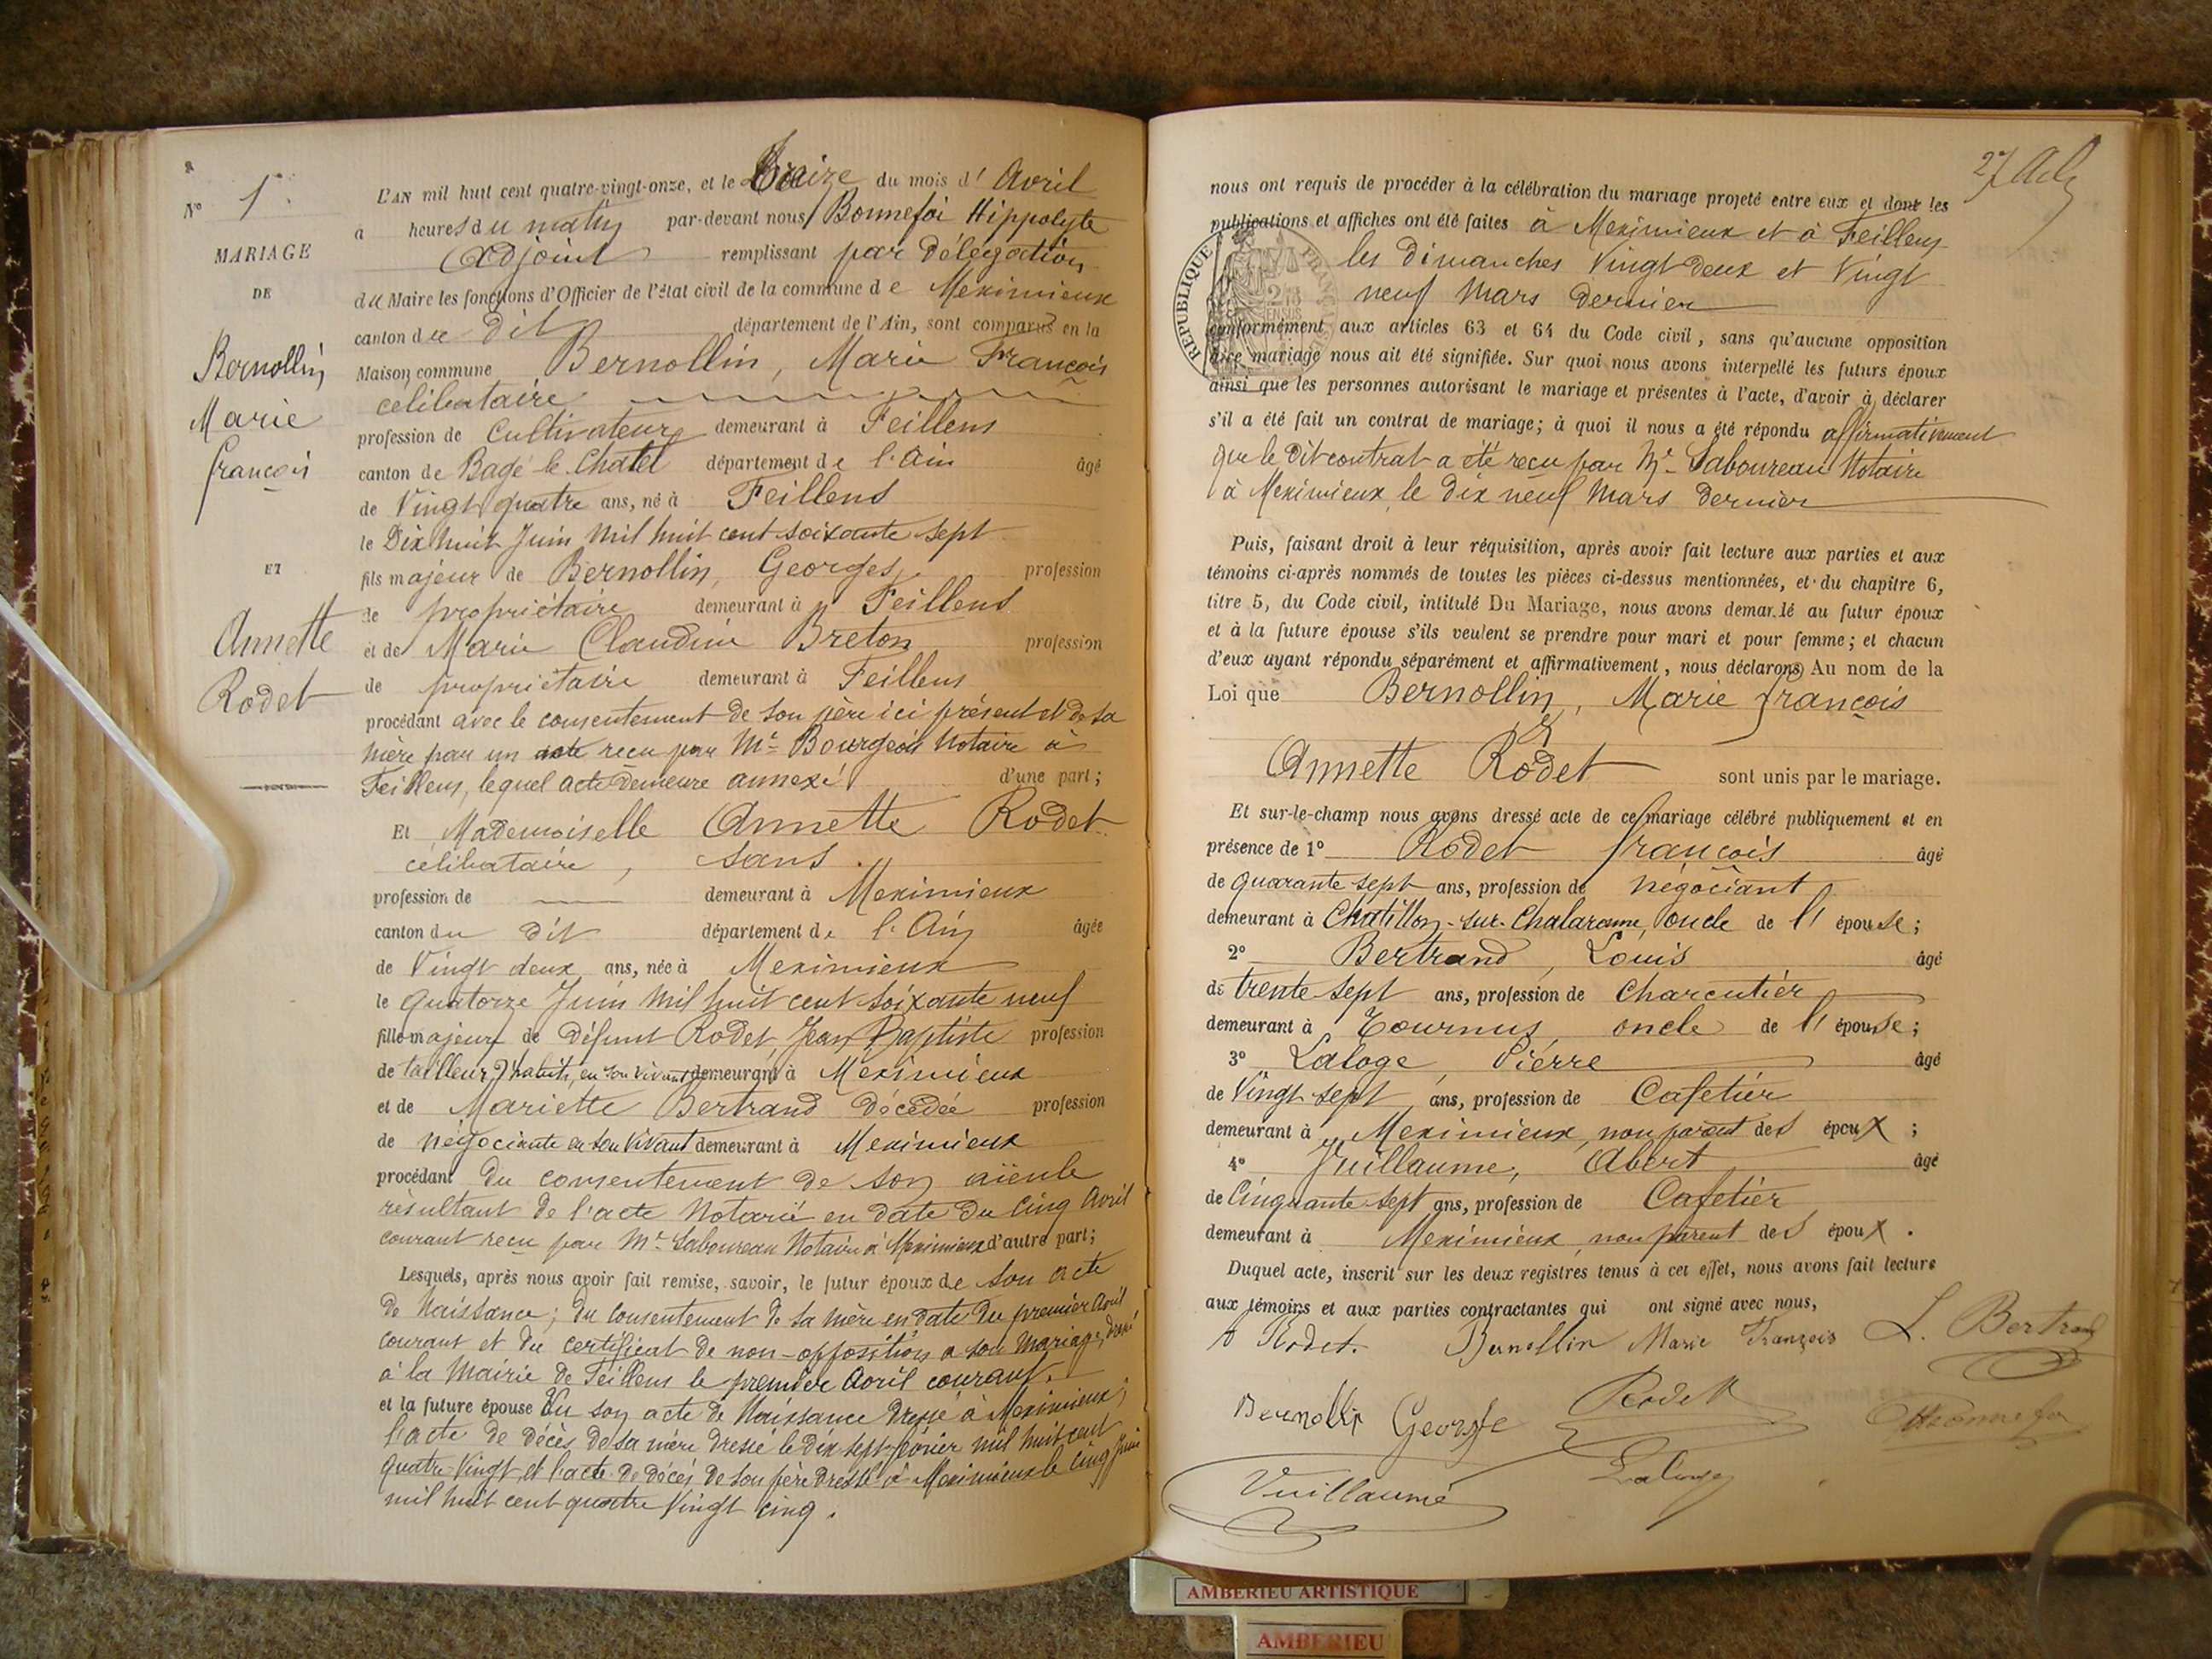 N° 1.
MARIAGE
DE
Bernollin
Marie
françois
ET
Annette
Rodet
L'AN mil huit cent quatre-vingt-onze, et le Treize du mois d' Avril
à heures du matin par-devant nous Bonnefoi Hippolyte
Adjoint remplissant par Délégation
du Maire les fonctions d'Officier de l'état civil de la commune de Meximieux
canton du dit département de l'Ain, sont comparus en la
Maison commune Bernollin, Marie François
célibataire
profession de Cultivateur demeurant à Feillens
canton de Bagé le Chatel département de l'Ain âgé
de Vingt quatre ans, né à Feillens
le Dix huit Juin Mil huit cent soixante sept
fils majeur de Bernollin, Georges, profession
de propriétaire demeurant à Feillens
et de Marie Claudine Breton profession
de propriétaire demeurant à Feillens
procédant avec le consentement de son père ici présent et de sa
mère par un acte reçu par Me Bourgeois Notaire à
Feillens, lequel acte demeure annexé d'une part;
Et Mademoiselle Annette Rodet
célibataire, sans
profession de demeurant à Meximieux
canton du dit département de l'Ain âgée
de Vingt deux ans, née à Meximieux
le quatorze Juin Mil huit cent soixante neuf
fille majeure de défunt Rodet Jean Baptiste profession
de tailleur d'habits, en son vivant demeurant à Meximieux
et de Mariette Bertrand Décédée profession
de négociante en son vivant demeurant à Meximieux
procédant du consentement de son aïeule
résultant de l'acte Notarié en date du cinq Avril
courant reçu par Me Laboureau Notaire à Meximieux d'autre part;
Lesquels, après nous avoir fait remise, savoir, le futur époux de son acte
de Naissance; du consentement de sa mère en date du premier Avril
courant et du certificat de non-opposition a son mariage, dressé
à la Mairie de Feillens le premier Avril courant.
et la future épouse du son acte de Naissance dressé à Meximieux;
l'acte de décès de sa mère dressé le dix sept février mil huit cent
quatre-Vingt, et l'acte de décès de son père dressé à Meximieux le cinq Juin
mil huit cent quatre Vingt cinq.
27
nous ont requis de procéder à la célébration du mariage projeté entre eux et dont les
publications et affiches ont été faites à Meximieux et à Feillens
les Dimanches Vingt deux et Vingt
neuf Mars dernier
RÉPUBLIQUE FRANÇAISE
conformément aux articles 63 et 64 du Code civil, sans qu'aucune opposition
à ce mariage nous ait été signifiée. Sur quoi nous avons interpellé les futurs époux
ainsi que les personnes autorisant le mariage et présentes à l'acte, d'avoir à déclarer
s'il a été fait un contrat de mariage; à quoi il nous a été répondu affirmativement
que le dit contrat a été reçu par Me Laboureau Notaire
à Meximieux, le dix neuf Mars dernier
Puis, faisant droit à leur réquisition, après avoir fait lecture aux parties et aux
témoins ci-après nommés de toutes les pièces ci-dessus mentionnées, et du chapitre 6,
titre 5, du Code civil, intitulé Du Mariage, nous avons demandé au futur époux
et à la future épouse s'ils veulent se prendre pour mari et pour femme; et chacun
d'eux ayant répondu séparément et affirmativement, nous déclarons Au nom de la
Loi que Bernollin, Marie françois
Et
Annette Rodet sont unis par le mariage.
Et sur-le-champ nous avons dressé acte de ce mariage célébré publiquement et en
présence de 1° Rodet françois âgé
de quarante sept ans, profession de négociant
demeurant à Chatillon-sur-Chalaronne, oncle de l'épouse;
2° Bertrand, Louis âgé
de trente sept ans, profession de Charcutier
demeurant à Tournus, oncle de l'épouse;
3° Laloge, Pierre âgé
de Vingt sept ans, profession de Cafetier
demeurant à Meximieux, non parent des époux;
4° Vuillaume, Abert âgé
de Cinquante sept ans, profession de Cafetier
demeurant à Meximieux, non parent des époux.
Duquel acte, inscrit sur les deux registres tenus à cet effet, nous avons fait lecture
aux témoins et aux parties contractantes qui ont signé avec nous,
A Rodet. Bernollin Marie François L. Bertrand
Bernollin George Rodet
Vuillaume Laloge
AMBERIEU ARTISTIQUE
AMBERIEU